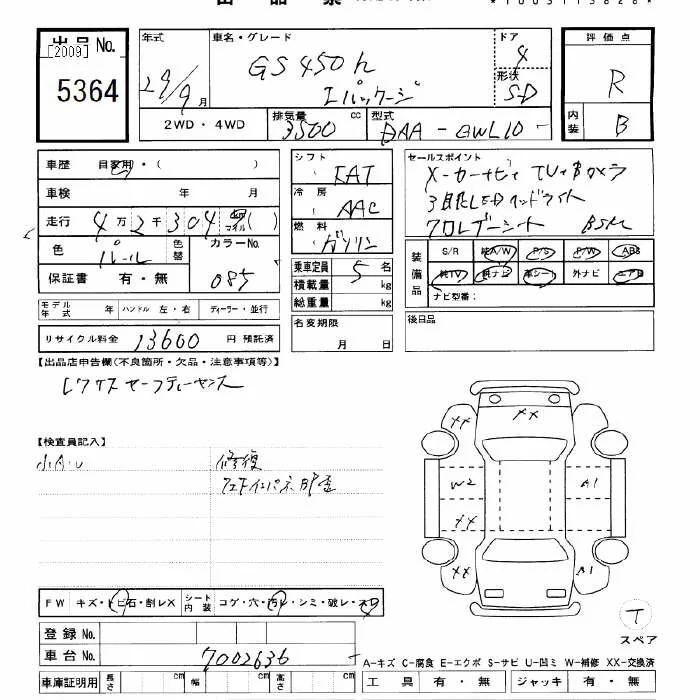 出品No.
[2009]
5364
年式 車名・グレード ドア 評価点
29/9月 GS450h 4 R
Iパッケージ 形状 S-D
2WD・4WD 排気量 3500 cc 型式 DAA-GWL10- 内装 B
車歴 自家用・( ) シフト FAT セールスポイント
X-カーナビィ TV・Bカメラ
車検 年 月 冷房 AAC 3眼LEDヘッドライト
走行 4万2千304 マイル ( ) 燃料 ガソリン クロレザーシート BSM
色 パール 色替 カラーNo. 085
保証書 有・無
乗車定員 5名
積載量 kg
総重量 kg
装備品 S/R 純A/W P/S P/W ABS
純TV 純ナビ 革シート 外ナビ エアB
ナビ型番:
モデル年式 年 ハンドル 左・右 ディーラー・並行
名変期限 月 日
後日品
リサイクル料金 13600 円 預託済
【出品店申告欄(不良箇所・欠品・注意事項等)】
レクサスセーフティーセンス
【検査員記入】
小A・U 修復
XX XX
W2 A1
XX
XX A1
FW キズ・トビ石・割レX シート内装 コゲ・穴・汚レ・シミ・破レ・スレ
T
スペア
登録No.
車台No. 7002636
A-キズ C-腐食 E-エクボ S-サビ U-凹ミ W-補修 XX-交換済
車庫証明用 長さ cm 幅 cm 高さ cm 工具 有・無 ジャッキ 有・無